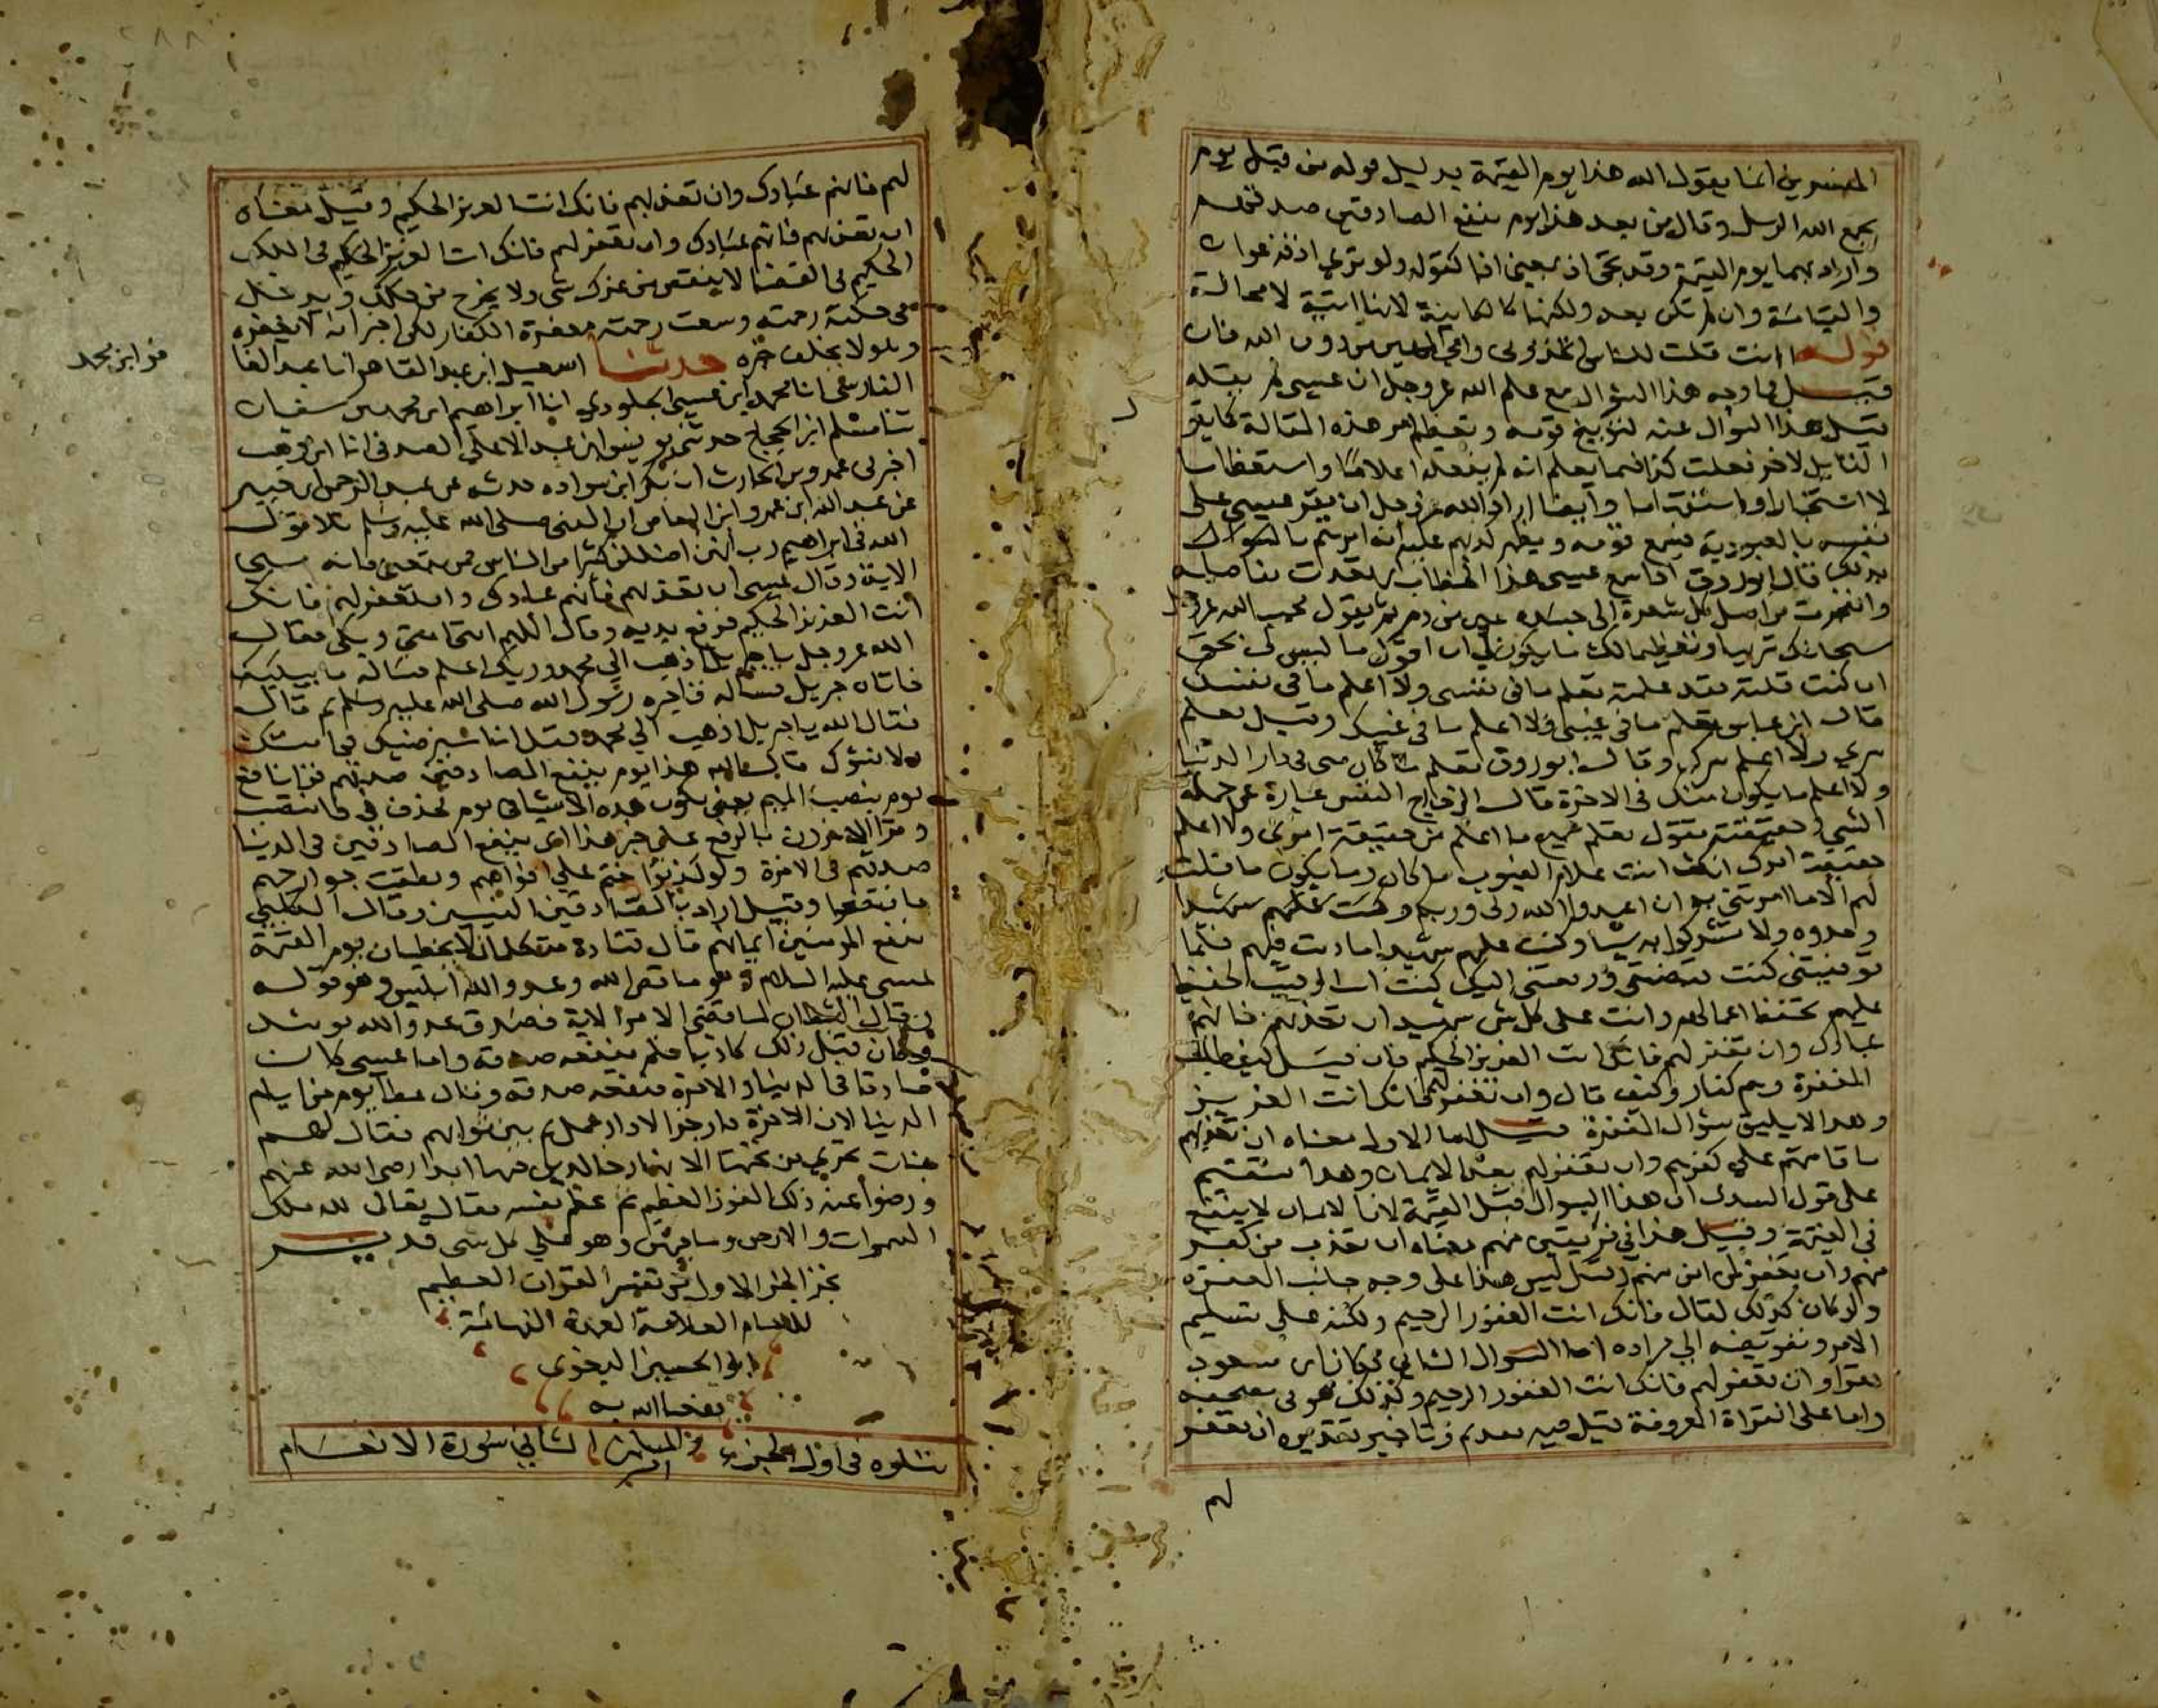 المفسرين انما يقول الله هذا يوم القيمة بدليل قوله من قبل يوم
يجمع الله الرسل وقال من بعد هذا يوم ينفع الصادقين صدقهم
واراد بهما يوم القيمة وقد تجئ اذ بمعنى اذا كقوله ولو ترى اذ فزعوا
والقيامة وان لم تكن بعد ولكنها كالكاينة لانها اتية لا محالة
قوله اانت قلت للناس اتخذوني وامي الهين من دون الله فان
قيل فما وجه هذا السؤال مع علم الله عز وجل ان عيسى لم يقله
قيل هذا السوال عنه لتوبيخ قومه وتعظيم امر هذه المقالة كما يقو
القايل لاخر افعلت كذا فيما يعلم انه لم يفعله اعلاما واستعظاما
لا استخبارا واستفهاما وايضا اراد الله عز وجل ان يقر عيسى على
نفسه بالعبودية فيسمع قومه ويظهر كذبهم عليه انه امرهم بذلك
قال ابو روق اذا سمع عيسى هذا الخطاب ارتعدت مفاصله
وانفجرت من اصل كل شعرة في جسده عين من دم ثم يقول مجيبا لله عز وجل
سبحانك تنزيها وتعظيما لك ما يكون لي ان اقول ما ليس لي بحق
ان كنت قلته فقد علمته تعلم ما في نفسي ولا اعلم ما في نفسك
قال ابن عباس تعلم ما في غيبي ولا اعلم ما في غيبك وقيل تعلم
سري ولا اعلم سرك وقال ابو روق تعلم ما كان مني في دار الدنيا
ولا اعلم ما يكون منك في الاخرة قال الزجاج النفس عبارة عن جملة
الشي وحقيقته يقول تعلم جميع ما اعلم من حقيقة امري ولا اعلم
حقيقة امرك انك انت علام الغيوب ما كان وما يكون ما قلت
لهم الا ما امرتني به ان اعبدوا الله ربي وربكم وكنت عليهم شهيدا
وحدوه ولا تشركوا به شيا وكنت عليهم شهيدا ما دمت فيهم فلما
توفيتني كنت قبضتني ورفعتني اليك كنت انت الرقيب الحفيظ
عليهم تحفظ اعمالهم وانت على كل شي شهيد ان تعذبهم فانهم
عبادك وان تغفر لهم فانك انت العزيز الحكيم فان قيل كيف طلب
المغفرة وهم كفار وكيف قال وان تغفر لهم فانك انت العزيز
وهذا لا يليق بسؤال المغفرة قيل اما الاول معناه ان تعذبهم
باقامتهم على كفرهم وان تغفر لهم بعد الايمان وهذا يستقيم
على قول السدي ان هذا السوال قبل القيمة لان الايمان لا ينفع
في القيمة وقيل هذا في فريقين منهم معناه ان تعذب من كفر
منهم وان تغفر لمن امن منهم وقيل ليس هذا على وجه طلب المغفرة
ولو كان كذلك لقال فانك انت الغفور الرحيم ولكنه على تسليم
الامر وتفويضه الى مراده اما السوال الثاني فكان ابن مسعود
يقرا وان تغفر لهم فانك انت الغفور الرحيم وكذلك هو في مصحفه
واما على القراة المعروفة قيل فيه تقديم وتاخير تقديره ان تغفر
لهم
لهم فانهم عبادك وان تعذبهم فانك انت العزيز الحكيم وقيل معناه
ان تعذبهم فانهم عبادك وان تغفر لهم فانك انت العزيز الحكيم في الملك
الحكيم في القضا لا ينقص من عزك شي ولا يخرج من حكمك ويدخل
في حكمته رحمته وسعت رحمته مغفرة الكفار لكن اخبر انه لا يغفره
وهو لا يخلف خبره حدثنا اسمعيل ابن عبد القاهر انا عبد الغا
الفارسي انا محمد ابن عيسى الجلودي انا ابراهيم ابن محمد بن سفيان
ثنا مسلم ابن الحجاج حدثني يونس ابن عبد الاعلى الصدفي انا ابن وهب
اخبرني عمرو بن الحارث ان بكر ابن سواده حدثه عن عبد الرحمن ابن جبير
عن عبد الله ابن عمرو ابن العاص ان النبي صلى الله عليه وسلم تلا قول
الله في ابراهيم رب انهن اضللن كثيرا من الناس فمن تبعني فانه مني
الاية وقال عيسى ان تعذبهم فانهم عبادك وان تغفر لهم فانك
انت العزيز الحكيم فرفع يديه وقال اللهم امتي امتي وبكى فقال
الله عز وجل يا جبريل اذهب الى محمد وربك اعلم فساله ما يبكيك
فاتاه جبريل فساله فاخبره رسول الله صلى الله عليه وسلم بم قال
فقال الله يا جبريل اذهب الى محمد فقل انا سنرضيك في امتك
ولا نسؤك قال الله هذا يوم ينفع الصادقين صدقهم قرا نافع
يوم بنصب الميم يعني تكون هذه الاشيا في يوم فحذف في فانتصب
وقرا الاخرون بالرفع على خبر هذا اي ينفع الصادقين في الدنيا
صدقهم في الاخرة ولو كذبوا ختم على افواههم ونطقت جوارحهم
فافتضحوا وقيل اراد بالصادقين النبيين وقال الكلبي
ينفع المومنين ايمانهم قال قتادة متكلمان لا يخطيان يوم القيمة
عيسى عليه السلام وهو ما قص الله وعدو الله ابليس وهو قوله
وقال الشيطان لما قضي الامر الاية فصدق عدو الله يومئذ
وكان قبل ذلك كاذبا فلم ينفعه صدقه واما عيسى كان
صادقا في الدنيا والاخرة فنفعه صدقه وقال عطا يوم من ايام
الدنيا لان الاخرة دار جزا لا دار عمل ثم بين ثوابهم فقال لهم
جنات تجري من تحتها الانهار خالدين فيها ابدا رضي الله عنهم
ورضوا عنه ذلك الفوز العظيم ثم عظم نفسه فقال تعالى لله ملك
السموات والارض وما فيهن وهو على كل شي قدير
نجز الجز الاول من تفسير القران العظيم
للامام العلامة العمدة الفهامة
ابو الحسين البغوي
نفعنا الله به
نتلوه في اول الجزء الثاني سورة الانعام